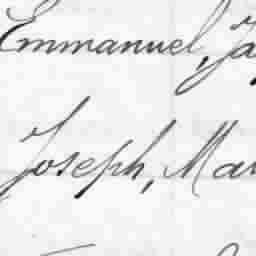 Emmanuel, Ja
Joseph, Mar